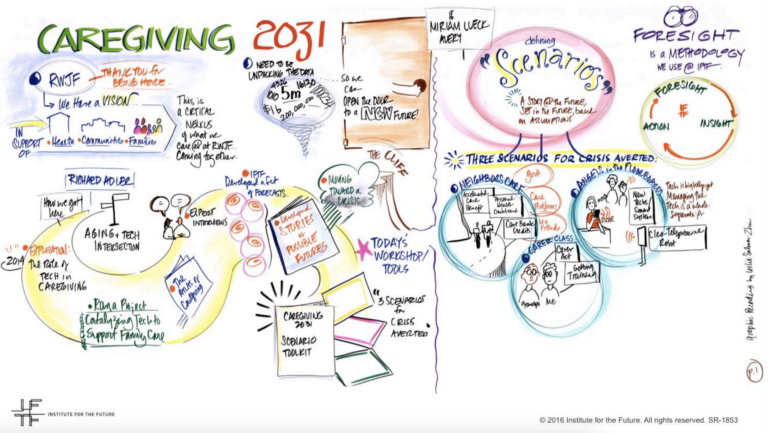 CAREGIVING 2031
RWJF
THANK YOU for
BEING HERE
We Have a VISION
IN
SUPPORT
OF
Health • Communities • Families
This is
a CRITICAL
NEXUS
of what we
care @ RWJF
Coming together
NEED TO BE
UNPACKING THE DATA
5m
So we
can
OPEN the DOOR
to a NEW Future!
THE CLIFF
RICHARD ADLER
How we got
here
AGING & TECH
INTERSECTION
EXPERT INTERVIEWS
2014
The Role of
TECH in
CAREGIVING
Ran a Project
Catalyzing Tech to
Support Family Care
The
of
Caregiving
IFTF
Developed a Set
of FORECASTS.
Developed
STORIES
of POSSIBLE
FUTURES
MOVING
TOWARD a
CRISIS
TODAY'S
WORKSHOP/
TOOLS
CAREGIVING
2031
SCENARIO
TOOLKIT
3 SCENARIOS
for
CRISIS
AVERTED
MIRIAM LUECK
AVERY
defining
"Scenarios"
A STORY of the FUTURE,
SET in the FUTURE, based
on ASSUMPTIONS
FORESIGHT
is a METHODOLOGY
WE USE @ IFTF
FORESIGHT
INSIGHT
ACTION
THREE SCENARIOS FOR CRISIS AVERTED:
NEIGHBORS CARE
Care
Benefit
Care
Credits
Care
Platforms
ANGELS in the
New
Tech
System
Tech is
Tech is a whole
Separate
Telepresence
Robot
CAREER CLASS
Care
Act
Getting
Training
Grandpa
Me
p. 1
INSTITUTE FOR THE FUTURE
© 2016 Institute for the Future. All rights reserved. SR-1853